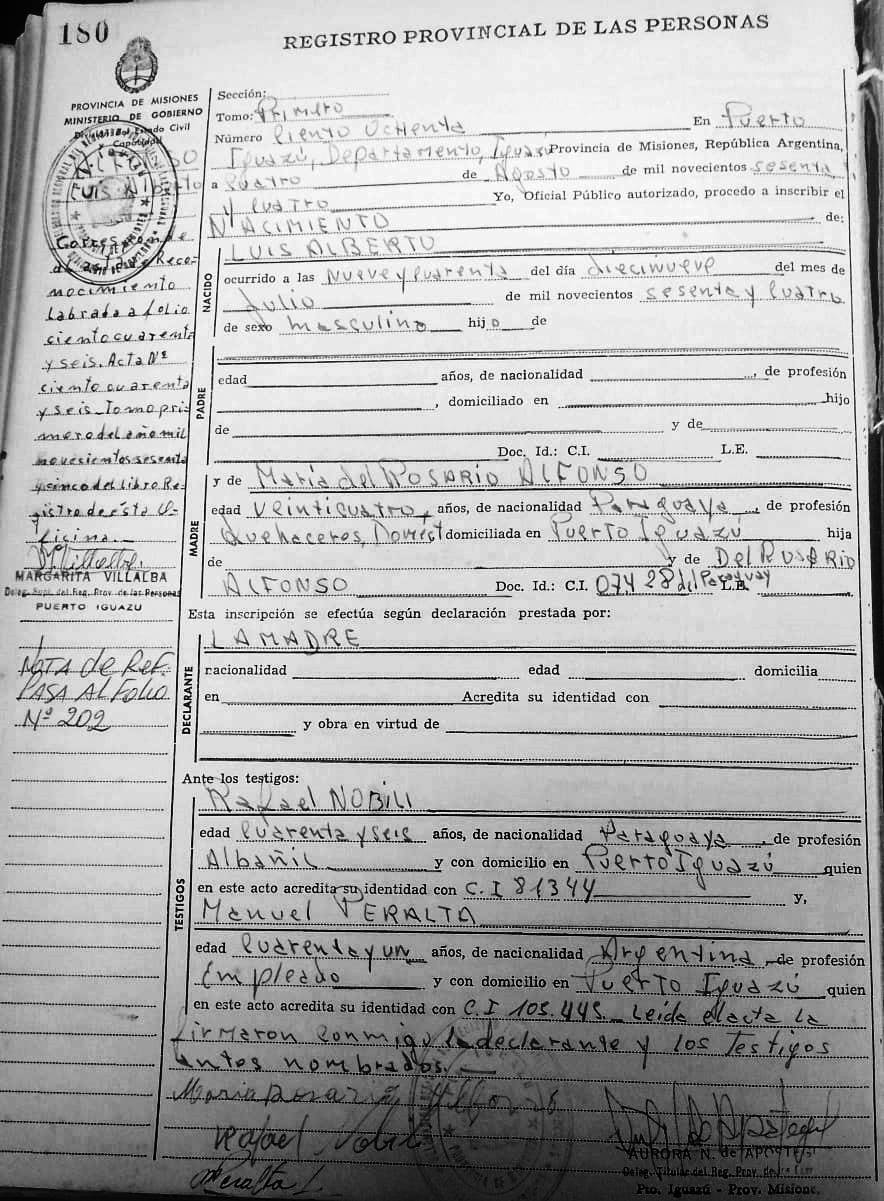 180
REGISTRO PROVINCIAL DE LAS PERSONAS
PROVINCIA DE MISIONES
MINISTERIO DE GOBIERNO
Estado Civil
Sección:
Tomo: Primero
Número Ciento Ochenta En Puerto
Iguazú, Departamento, Iguazú Provincia de Misiones, República Argentina,
a Cuatro de Agosto de mil novecientos sesenta
y Cuatro Yo, Oficial Público autorizado, procedo a inscribir el
NACIMIENTO de:
NACIDO
LUIS ALBERTO
ocurrido a las Nueve y Cuarenta del día diecinueve del mes de
Julio de mil novecientos sesenta y Cuatro
de sexo masculino hijo de
PADRE
edad años, de nacionalidad , de profesión
, domiciliado en hijo
de y de
Doc. Id.: C.I. L.E.
MADRE
y de María del ROSARIO ALFONSO
edad Veinticuatro, años, de nacionalidad Paraguaya, de profesión
Quehaceres, Domest domiciliada en Puerto Iguazú hija
de y de Del ROSARIO
ALFONSO Doc. Id.: C.I. 07428 del Paraguay L.E.
Esta inscripción se efectúa según declaración prestada por:
DECLARANTE
LA MADRE
nacionalidad edad domicilia
en Acredita su identidad con
y obra en virtud de
Ante los testigos:
TESTIGOS
Rafael NOBILI
edad Cuarenta y seis años, de nacionalidad Paraguaya, de profesión
Albañil y con domicilio en Puerto Iguazú quien
en este acto acredita su identidad con C.I 81344 y,
Manuel PERALTA
edad Cuarenta y un años, de nacionalidad Argentina, de profesión
Empleado y con domicilio en Puerto Iguazú quien
en este acto acredita su identidad con C.I 105.445. Leída el acta la
firmaron conmigo la declarante y los Testigos
antes nombrados.
Maria Alfonso
Rafael Nobili
Peralta
AURORA N. de
Deleg. Titular del Reg. Prov. de
Pto. Iguazú - Prov. Misiones
LUIS Alberto
Reco-
nocimiento
labrada a folio
ciento cuarenta
y seis. Acta Nº
ciento cuarenta
y seis_Tomo pri-
mero del año mil
novecientos sesenta
y cinco del libro Re-
gistro de ésta O-
ficina.
M Villalba.
MARGARITA VILLALBA
Deleg. Supl. del Reg. Prov. de las Personas
PUERTO IGUAZU
NOTA de Ref.
PASA AL Folio
Nº 202